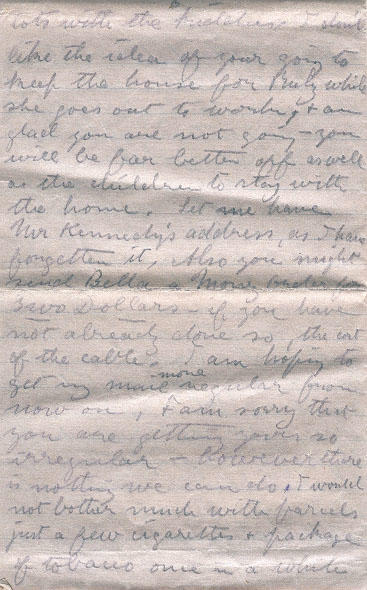 lots with the kiddies. I don't
like the idea of your going to
keep the house for Ruby while
she goes out to work, & am
glad you are not going - you
will be far better off as well
as the children to stay with
the home. Let me have
Mr Kennedy's address, as I have
forgotten it, Also you might
send Bella a Money Order for
Two Dollars - if you have
not already done so, the cost
of the cable. I am hoping to
get my mail more regular from
now on, & am sorry that
you are getting yours so
irregular - However there
is nothing we can do, I would
not bother much with parcels
just a few cigarettes & package
of tobacco once in a while